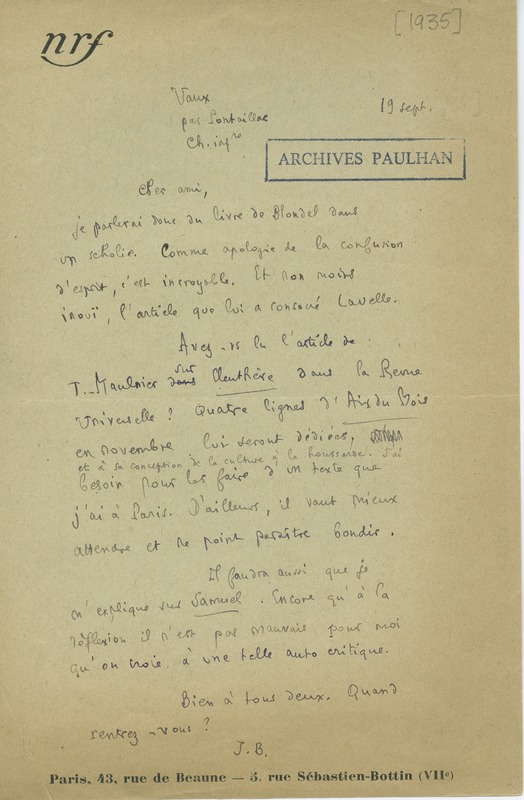 [1935]
nrf
Vaux
par Pontaillac
Ch. infre
19 sept.
ARCHIVES PAULHAN
Cher ami,
je parlerai donc du livre de Blondel dans
un scholie. Comme apologie de la confusion
d'esprit, c'est incroyable. Et non moins
inouï, l'article que lui a consacré Lavelle.
Avez-vs lu l'article de :
T. Maulnier dans sur Eleuthère dans la Revue
Universelle ? Quatre lignes d'Airs du Mois
en novembre lui seront dédiées,
et à sa conception de la culture à la houssarde. J'ai
besoin pour les faire d'un texte que
j'ai à Paris. D'ailleurs, il vaut mieux
attendre et ne point paraître bondir.
Il faudra aussi que je
m'explique sur Samuel. Encore qu'à la
réflexion il n'est pas mauvais pour moi
qu'on croie à une telle auto critique.
Bien à tous deux. Quand
rentrez-vous ?
J.B.
Paris, 43, rue de Beaune — 5, rue Sébastien-Bottin (VIIe)